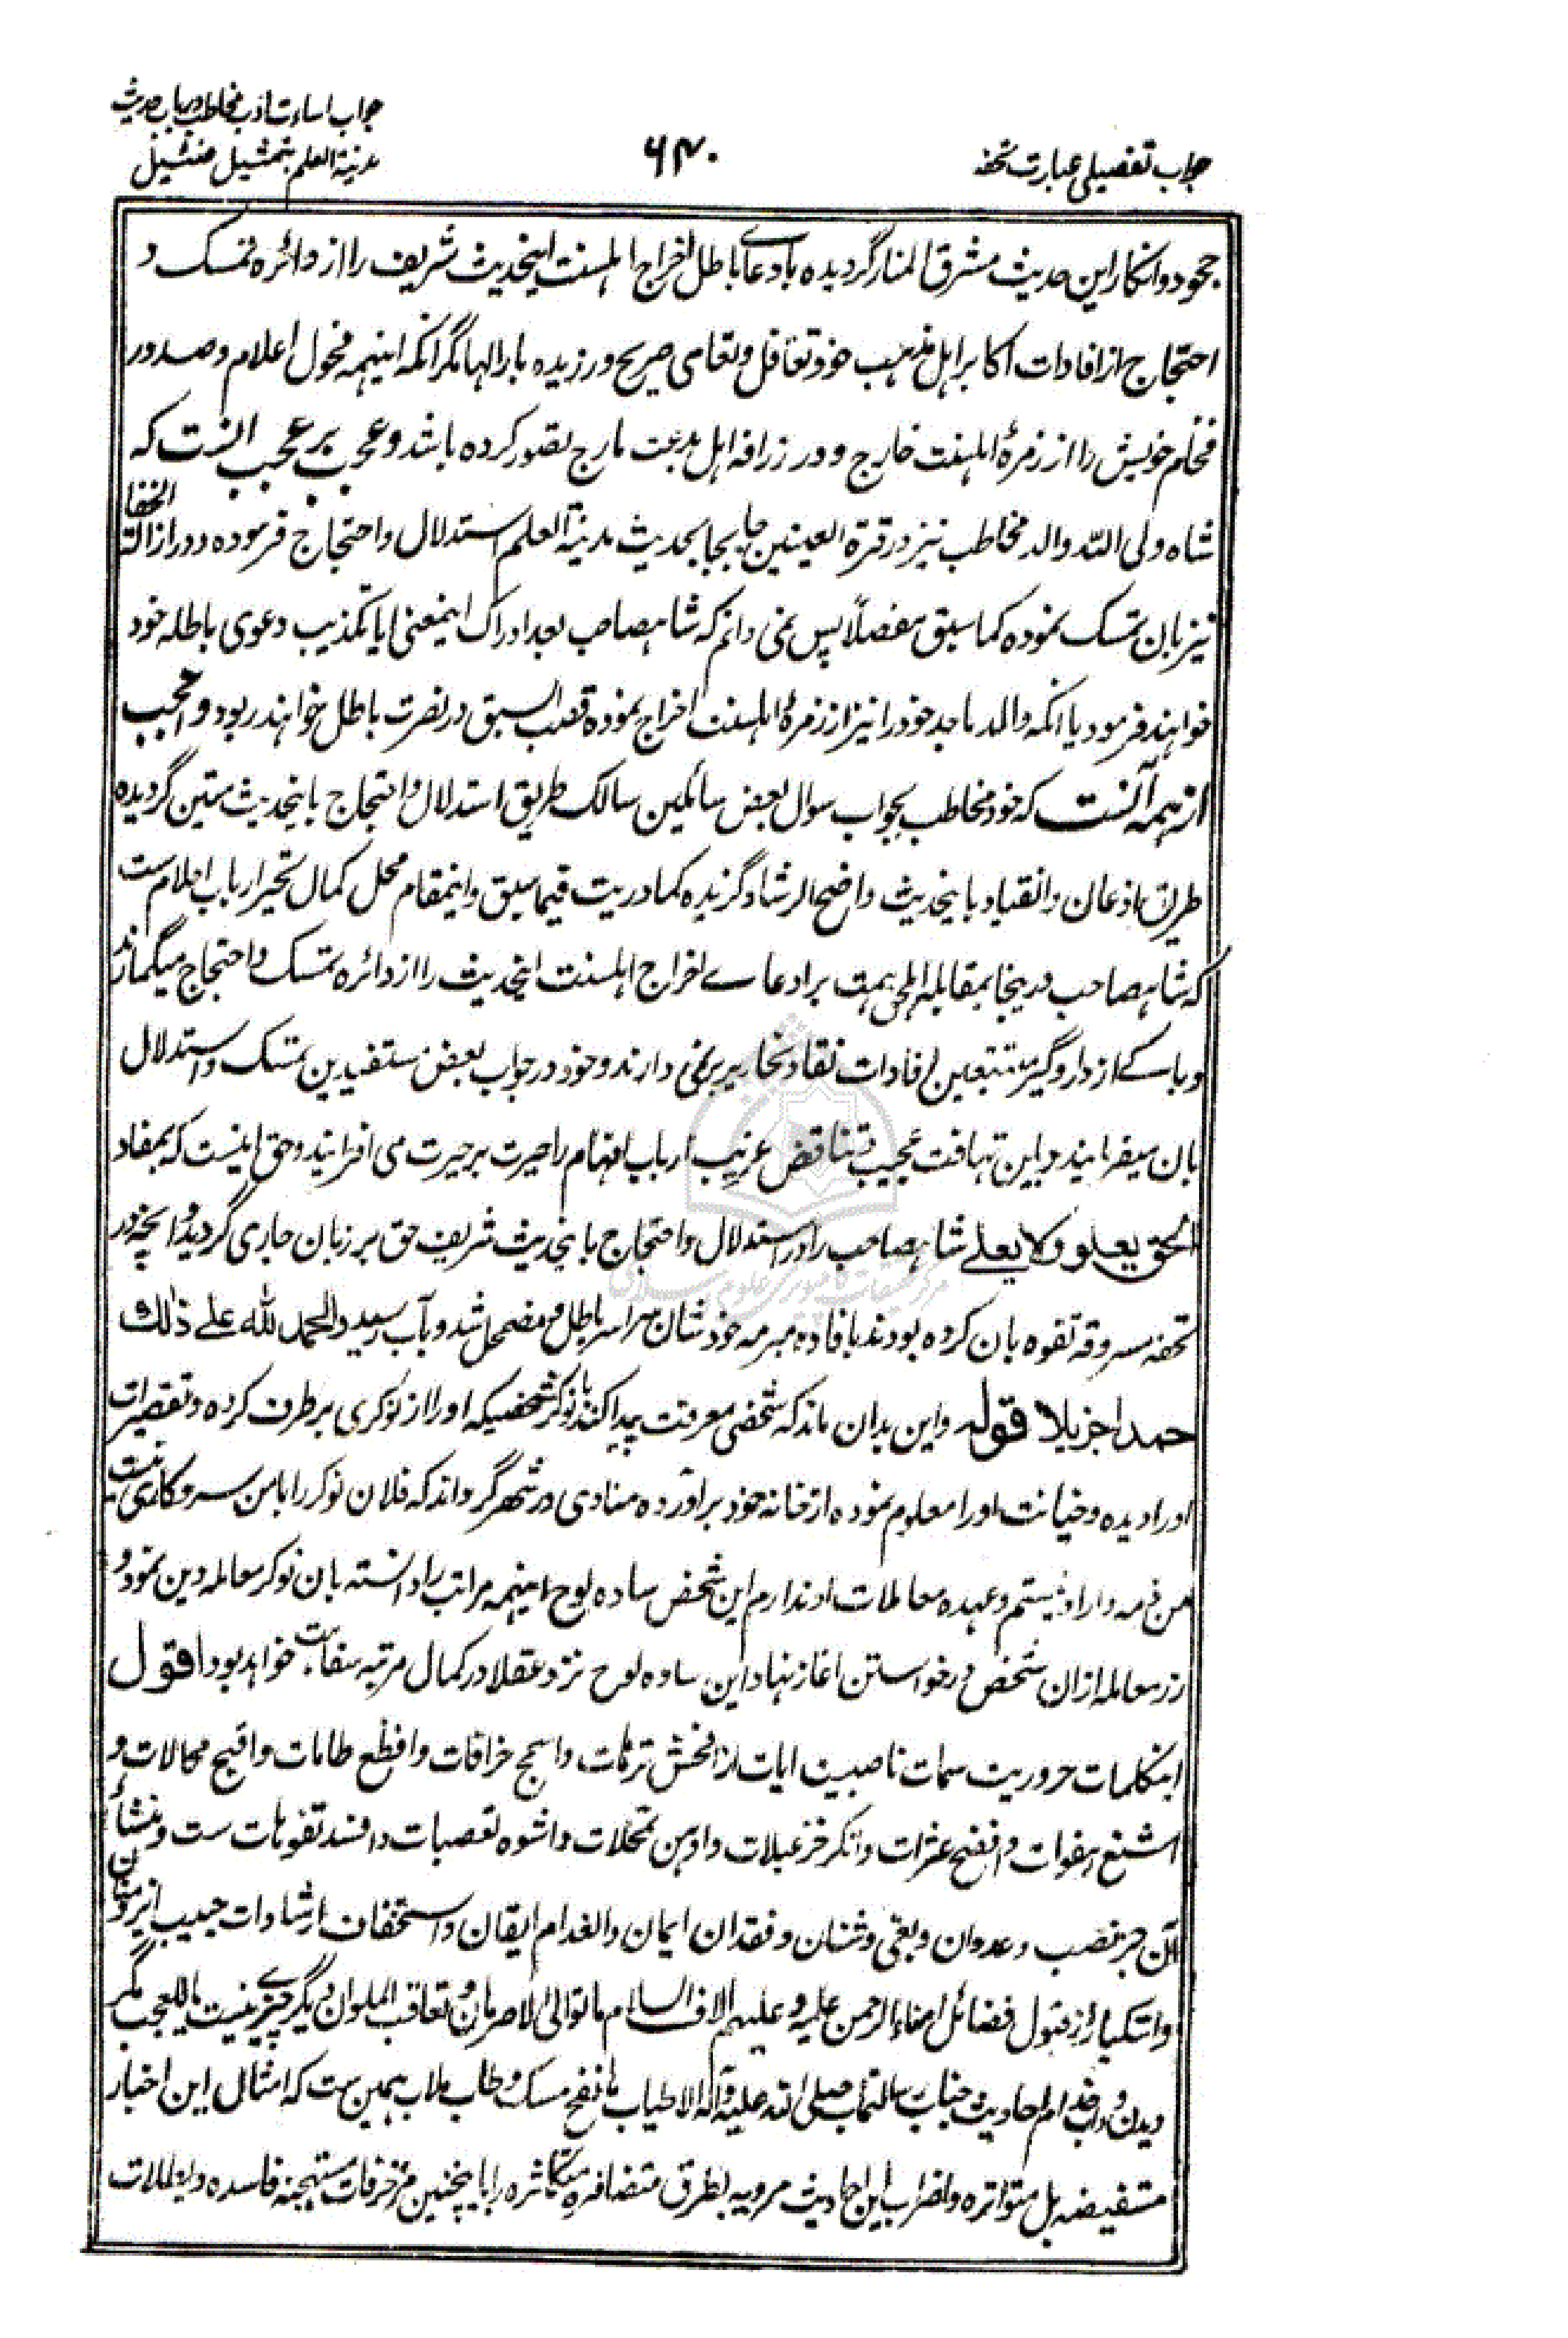 جواب تفصیلی عبارت تحفه
۶۴۰
جواب اساءت ادب مخاطب در باب حدیث
مدینة العلم بتمثیل ضئیل
جحود و انکار این حدیث مشرق المنار گردیده بادعای باطل اخراج اهلسنت اینحدیث شریف را از دائره تمسک و
احتجاج از افادات اکابر اهل مذهب خود تغافل و تعامی صریح ورزیده بارالها مگر آنکه اینهمه فحول اعلام و صدور
فخام خویش را از زمرهٔ اهلسنت خارج و در زرافه اهل بدعت مارج تصور کرده باشد و عجب بر عجب آنست که
شاه ولی الله والد مخاطب نیز در قرة العینین جابجا بحدیث مدینة العلم استدلال و احتجاج فرموده و در ازالة الخفا
نیز بان تمسک نموده کما سبق مفصلاً پس نمی دانم که شاهصاحب بعد ادراک اینمعنی ایا تکذیب دعوی باطله خود
خواهند فرمود یا آنکه والد ماجد خود را نیز از زمرهٔ اهلسنت اخراج نموده قصب السبق در نصرت باطل خواهند ربود و اعجب
از همه آنست که خود مخاطب بجواب سوال بعض سائلین سالک طریق استدلال و احتجاج باینحدیث متین گردیده
طریق اذعان و انقیاد باینحدیث واضح الرشاد گزیده کما دریت فیما سبق و اینمقام محل کمال تحیر ارباب احلام ست
که شاهصاحب در ینجا بمقابله اهل حق همت بر ادعاے اخراج اهلسنت اینحدیث را از دائره تمسک و احتجاج میگمارند
و باکے از دار و گیر متتبعین افادات نقاد نحاریر بر نمی دارند و خود در جواب بعض مستفیدین تمسک و استدلال
بان میفرمایند و باین تهافت عجیب و تناقض غریب ارباب افهام را حیرت بر حیرت می افزایند و حق اینست که بمفاد
الحق یعلو ولا یعلے شاهصاحب را در استدلال و احتجاج باینحدیث شریف حق بر زبان جاری گردید و آنچه در
تحفه مسروقه تفوه بان کرده بودند بافاده مبرمه خودشان سراسر باطل و مضمحل شد و بآب رسید والحمد لله علے ذلك
حمدا جزیلا قوله و این بدان ماند که شخصی معرفت پیدا کند با نوکر شخصیکه او را از نوکری بر طرف کرده و تقصیرات
او را دیده و خیانت او را معلوم نموده از خانه خود براورده منادی در شهر گرداند که فلان نوکر را با من سروکاری نیست
من ذمه دار او نیستم و عهده معاملات او ندارم این شخص ساده لوح اینهمه مراتب را دانسته بان نوکر معامله دین نمود و
زر معامله ازان شخص درخواستن اغاز نهاد این ساده لوح نزد عقلا در کمال مرتبه سفاهت خواهد بود اقول
اینکلمات حروریت سمات ناصبیت ایات از افحش ترهات و اسمج خرافات و افظع طامات و اقبح محالات و
اشنع هفوات و افضح عثرات و انکر خزعبلات و اوهن تمحلات و اشوه تعصبات و افسد تفوهات ست و منشأ
آن جز نصب و عدوان و بغی و شنان و فقدان ایمان و انعدام ایقان و استخفاف ارشادات حبیب ایزد منان
و استکبار از قبول فضائل امناء الرحمن علیه و علیهم آلاف السلام ما توالی الاصرمان و تعاقب الملوان دیگر چیزے نیست یاللعجب مگر
دیدن و داب خدام احادیث جناب رسالتماب صلی الله علیه وآله الاطیاب ما نفح مسک و طاب ملاب همین ست که امثال این اخبار
مستفیضه بل متواتره و اضراب این احادیث مرویه بطرق متضافره متکاثره را باینچنین مزخرفات مستهجنه فاسده و ابطالات